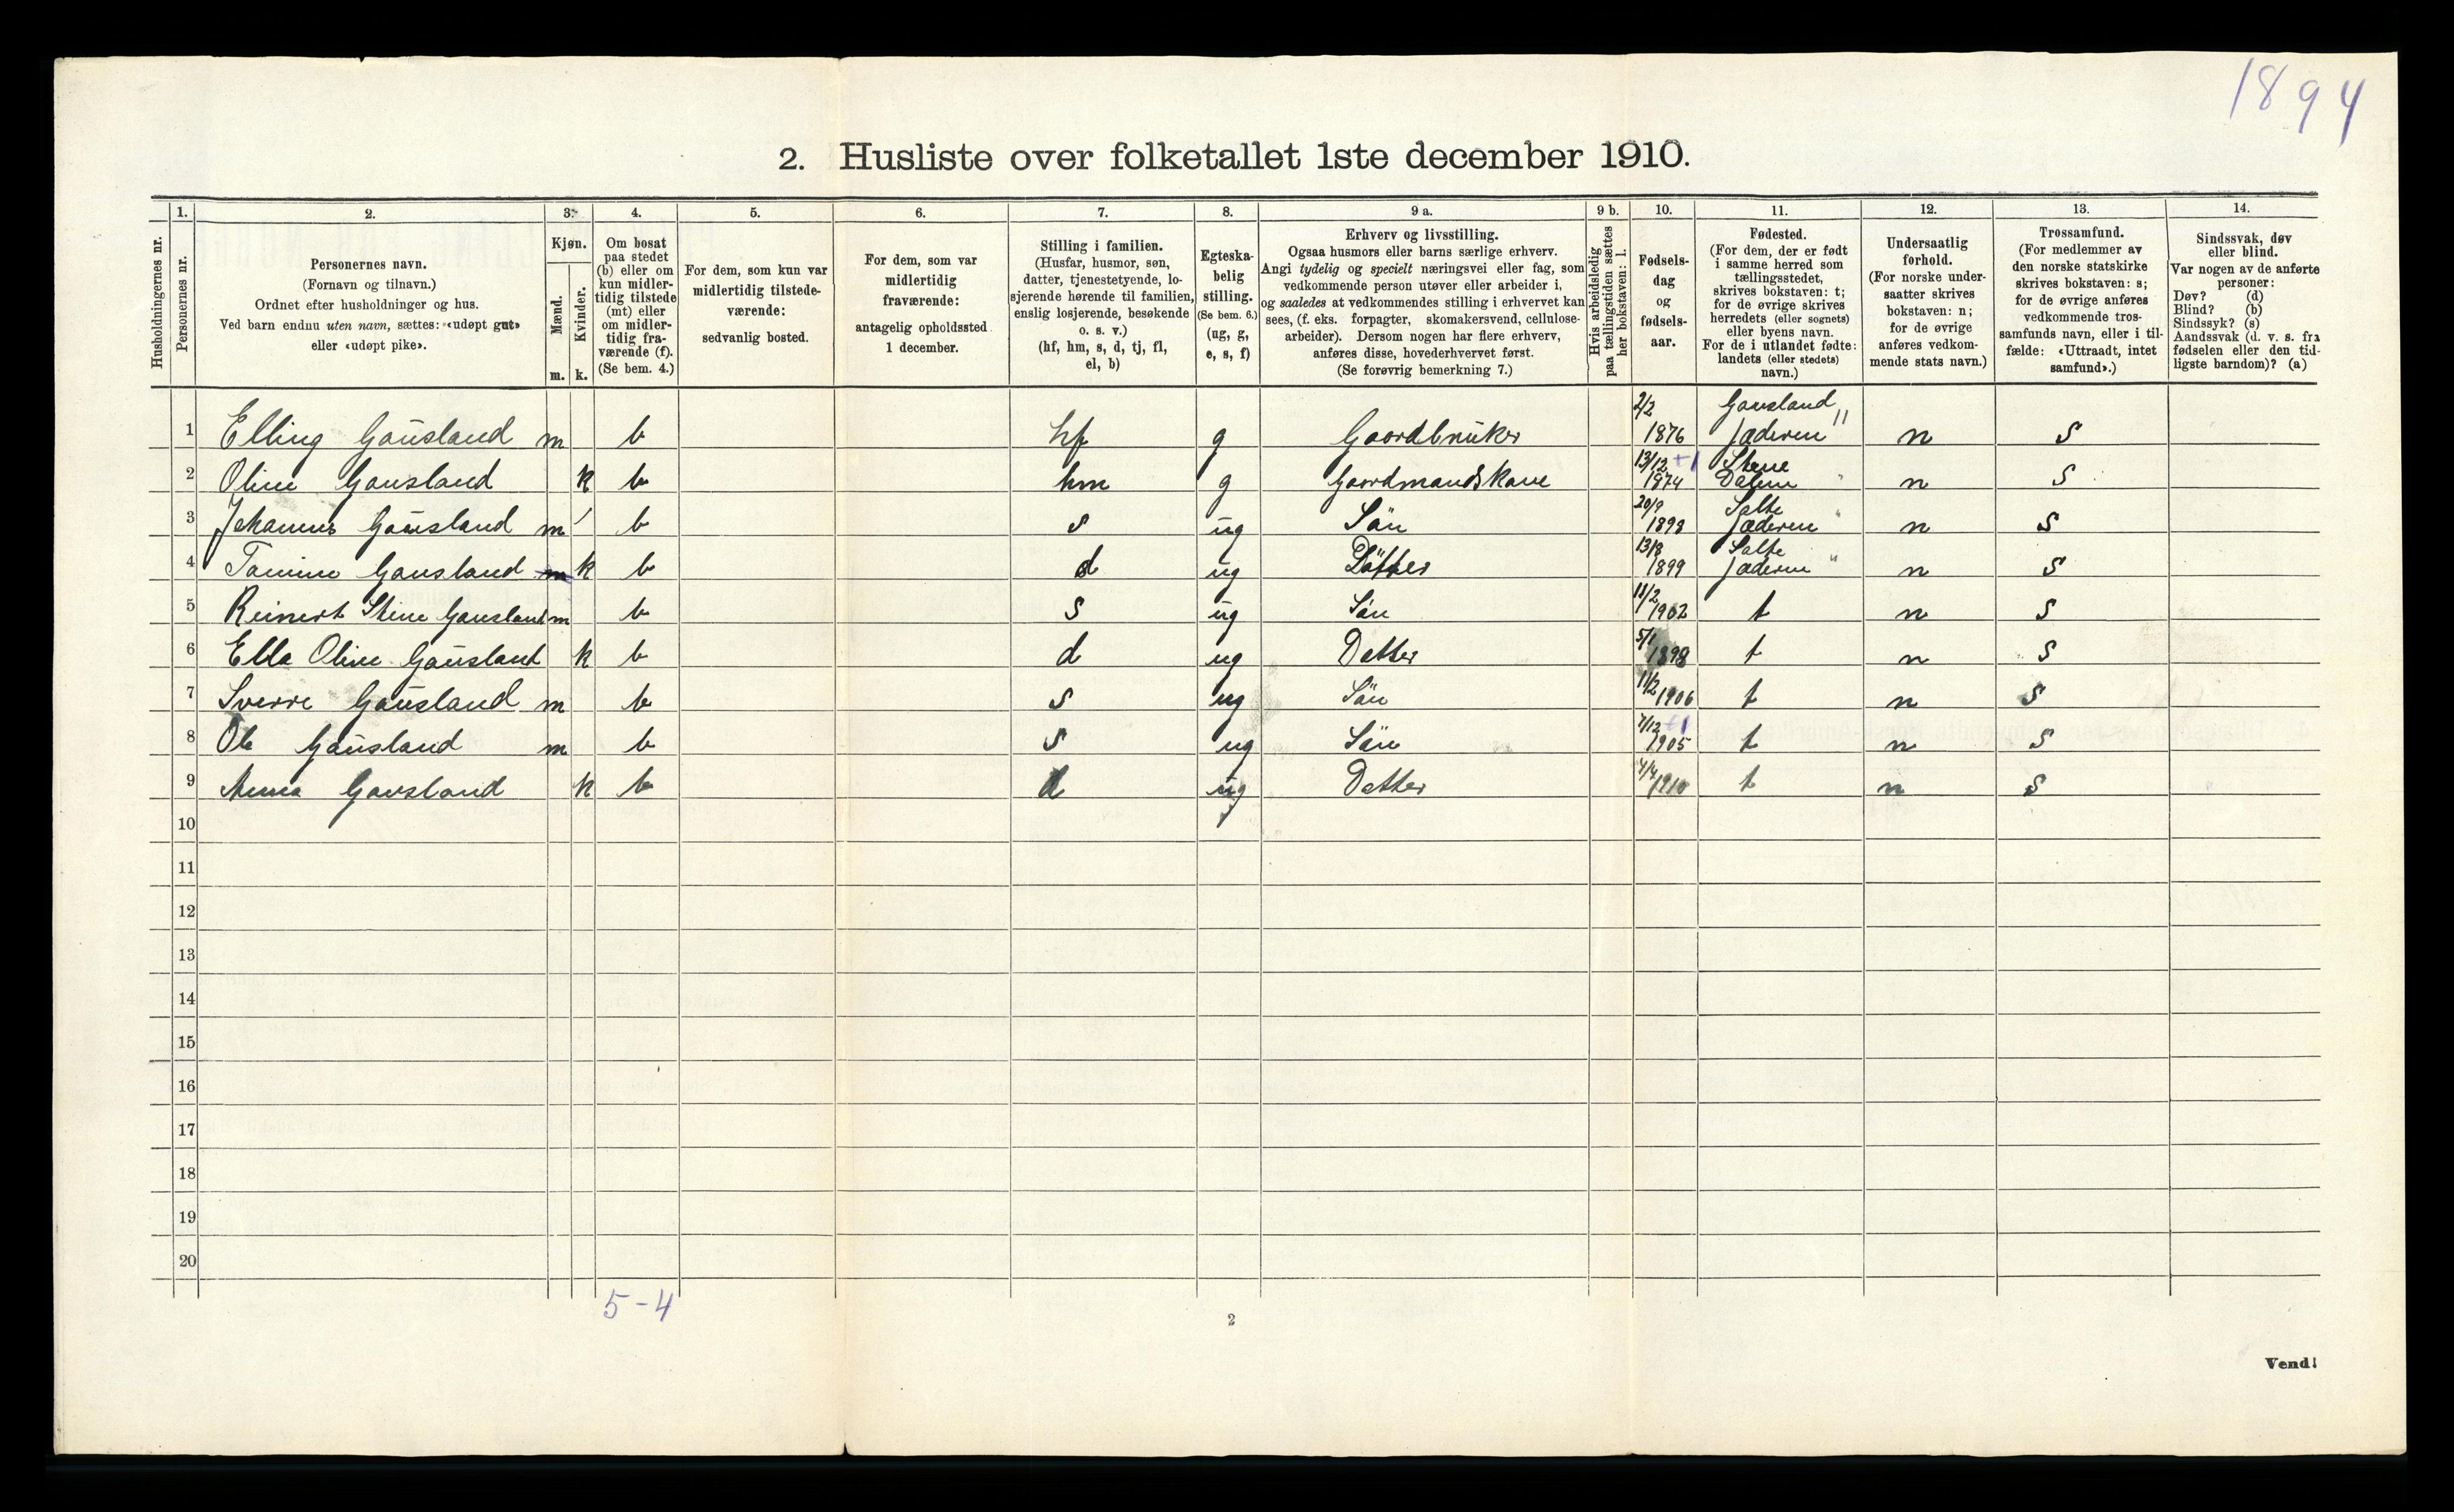 1894
2. Husliste over folketallet 1ste december 1910.
Husholdningernes nr.
1.
Personernes nr.
2.
Personernes navn.
(Fornavn og tilnavn.)
Ordnet efter husholdninger og hus.
Ved barn endnu uten navn, sættes: «udøpt gut»
eller «udøpt pike».
3.
Kjøn.
Mænd.
Kvinder.
m. k.
4.
Om bosat
paa stedet
(b) eller om
kun midler-
tidig tilstede
(mt) eller
om midler-
tidig fra-
værende (f).
(Se bem. 4.)
5.
For dem, som kun var
midlertidig tilstede-
værende:
sedvanlig bosted.
6.
For dem, som var
midlertidig
fraværende:
antagelig opholdssted
1 december.
7.
Stilling i familien.
(Husfar, husmor, søn,
datter, tjenestetyende, lo-
sjerende hørende til familien,
enslig losjerende, besøkende
o. s. v.)
(hf, hm, s, d, tj, fl,
el, b)
8.
Egteska-
belig
stilling.
(Se bem. 6.)
(ug, g,
e, s, f)
9 a.
Erhverv og livsstilling.
Ogsaa husmors eller barns særlige erhverv.
Angi tydelig og specielt næringsvei eller fag, som
vedkommende person utøver eller arbeider i,
og saaledes at vedkommendes stilling i erhvervet kan
sees, (f. eks. forpagter, skomakersvend, cellulose-
arbeider). Dersom nogen har flere erhverv,
anføres disse, hovederhvervet først.
(Se forøvrig bemerkning 7.)
9 b.
Hvis arbeidsledig
paa tællingstiden sættes
her bokstaven: l.
10.
Fødsels-
dag
og
fødsels-
aar.
11.
Fødested.
(For dem, der er født
i samme herred som
tællingsstedet,
skrives bokstaven: t;
for de øvrige skrives
herredets (eller sognets)
eller byens navn.
For de i utlandet fødte:
landets (eller stedets)
navn.)
12.
Undersaatlig
forhold.
(For norske under-
saatter skrives
bokstaven: n;
for de øvrige
anføres vedkom-
mende stats navn.)
13.
Trossamfund.
(For medlemmer av
den norske statskirke
skrives bokstaven: s;
for de øvrige anføres
vedkommende tros-
samfunds navn, eller i til-
fælde: «Uttraadt, intet
samfund».)
14.
Sindssvak, døv
eller blind.
Var nogen av de anførte
personer:
Døv? (d)
Blind? (b)
Sindssyk? (s)
Aandssvak (d. v. s. fra
fødselen eller den tid-
ligste barndom)? (a)
2/2 Gausland "
1 Elling Gausland m b hf g Gaardbruker 1876 Jæderen n S
13/12 +1 Stene
2 Oline Gausland k b hm g Gaardmandskone 1874 n S
20/9 Salte "
3 Johannes Gausland m b s ug Sön 1898 Jæderen n S
13/8 Salte "
4 Gausland k b d ug Datter 1899 Jæderen n S
11/2
5 Reinert Stene Gausland m b S ug Sön 1902 t n S
5/1
6 Ella Oline Gausland k b d ug Datter 1898 t n S
11/2
7 Sverre Gausland m b s ug Sön 1906 t n S
7/12 +1
8 Ole Gausland m b S ug Sön 1905 t n S
4/4
9 Anna Gausland k b d ug Datter 1910 t n S
10
11
12
13
14
15
16
17
18
19
20
5-4
2
Vend!